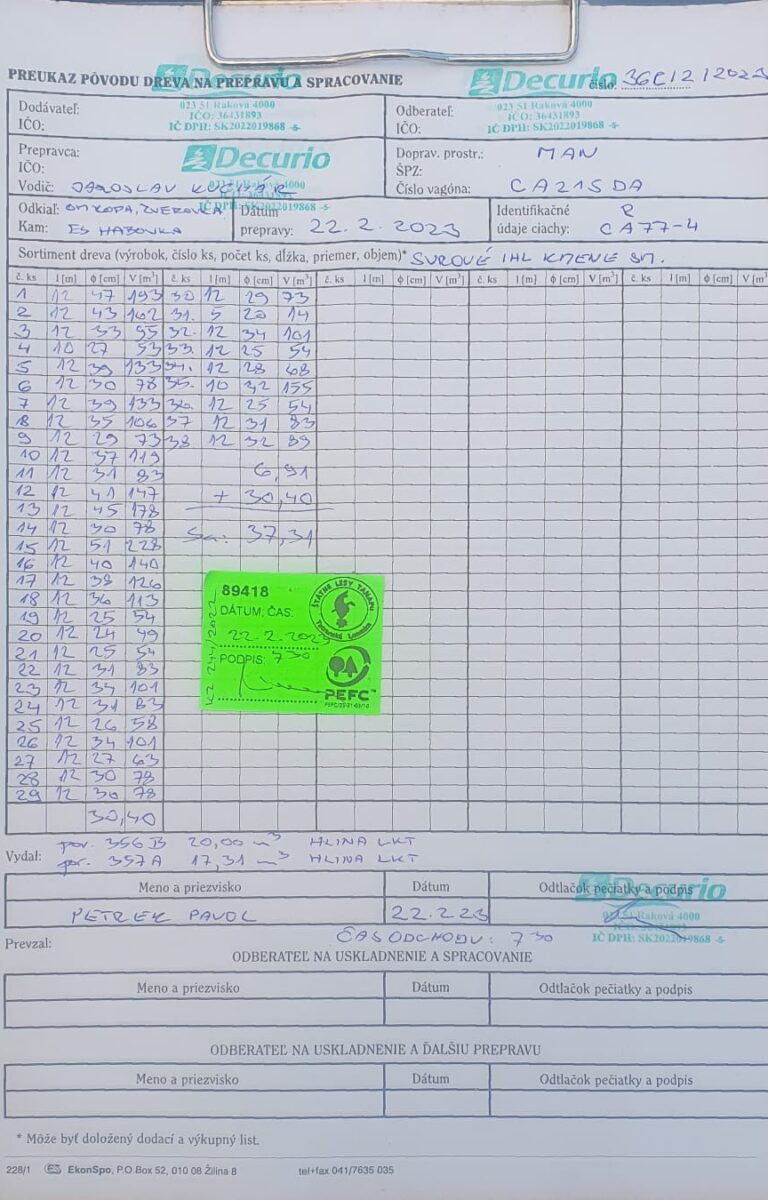 PREUKAZ PÔVODU DREVA NA PREPRAVU A SPRACOVANIE
Decurio
číslo: 36C12/2023
Dodávateľ:
IČO:
023 51 Raková 4000
IČO: 36431893
IČ DPH: SK2022019868
Odberateľ:
IČO:
023 51 Raková 4000
IČO: 36431893
IČ DPH: SK2022019868
Prepravca:
IČO:
Decurio
Vodič: JAROSLAV
Doprav. prostr.: MAN
ŠPZ:
Číslo vagóna: CA215DA
Odkiaľ: OM KOPA, ZVEROVKA
Kam: ES HABOVKA
Dátum
prepravy: 22.2.2023
Identifikačné R
údaje ciachy: CA77-4
Sortiment dreva (výrobok, číslo ks, počet ks, dĺžka, priemer, objem)* SUROVÉ IHL KMENE SM.
č. ks l [m] ϕ [cm] V [m³] č. ks l [m] ϕ [cm] V [m³] č. ks l [m] ϕ [cm] V [m³] č. ks l [m] ϕ [cm] V [m³] č. ks l [m] ϕ [cm] V [m³]
1 12 47 193 30 12 29 73
2 12 43 162 31. 5 20 14
3 12 33 95 32. 12 34 101
4 10 27 53 33. 12 25 54
5 12 39 133 34. 12 28 68
6 12 30 78 35. 10 155
7 12 39 133 36. 12 25 54
8 12 35 106 37 12 31 83
9 12 29 73 38 12 32 89
10 12 37 119
11 12 31 83 6,91
12 12 41 147 + 30,40
13 12 45 178
14 12 30 78 Sa: 37,31
15 12 51 228
16 12 40 140
17 12 38 126
18 12 36 113
19 12 25 54
20 12 24 49
21 12 25 54
22 12 31 83
23 12 34 101
24 12 31 83
25 12 26 58
26 12 34 101
27 12 27 63
28 12 30 78
29 12 30 78
30,40
89418
DÁTUM, ČAS:
22.2.2023
PODPIS: 730
ŠTÁTNE LESY TANAPU
Tatranská Lomnica
PEFC
Vydal: por. 356 B 20,00 m³ HLINA LKT
por. 357 A 17,31 m³ HLINA LKT
Meno a priezvisko Dátum Odtlačok pečiatky a podpis
PETREK PAVOL 22.2.23
Decurio
023 51 Raková 4000
IČ DPH: SK2022019868
Prevzal: ČAS ODCHODU: 730
ODBERATEĽ NA USKLADNENIE A SPRACOVANIE
Meno a priezvisko Dátum Odtlačok pečiatky a podpis
ODBERATEĽ NA USKLADNENIE A ĎALŠIU PREPRAVU
Meno a priezvisko Dátum Odtlačok pečiatky a podpis
* Môže byť doložený dodací a výkupný list.
228/1 EkonSpo, P.O.Box 52, 010 08 Žilina 8 tel+fax 041/7635 035